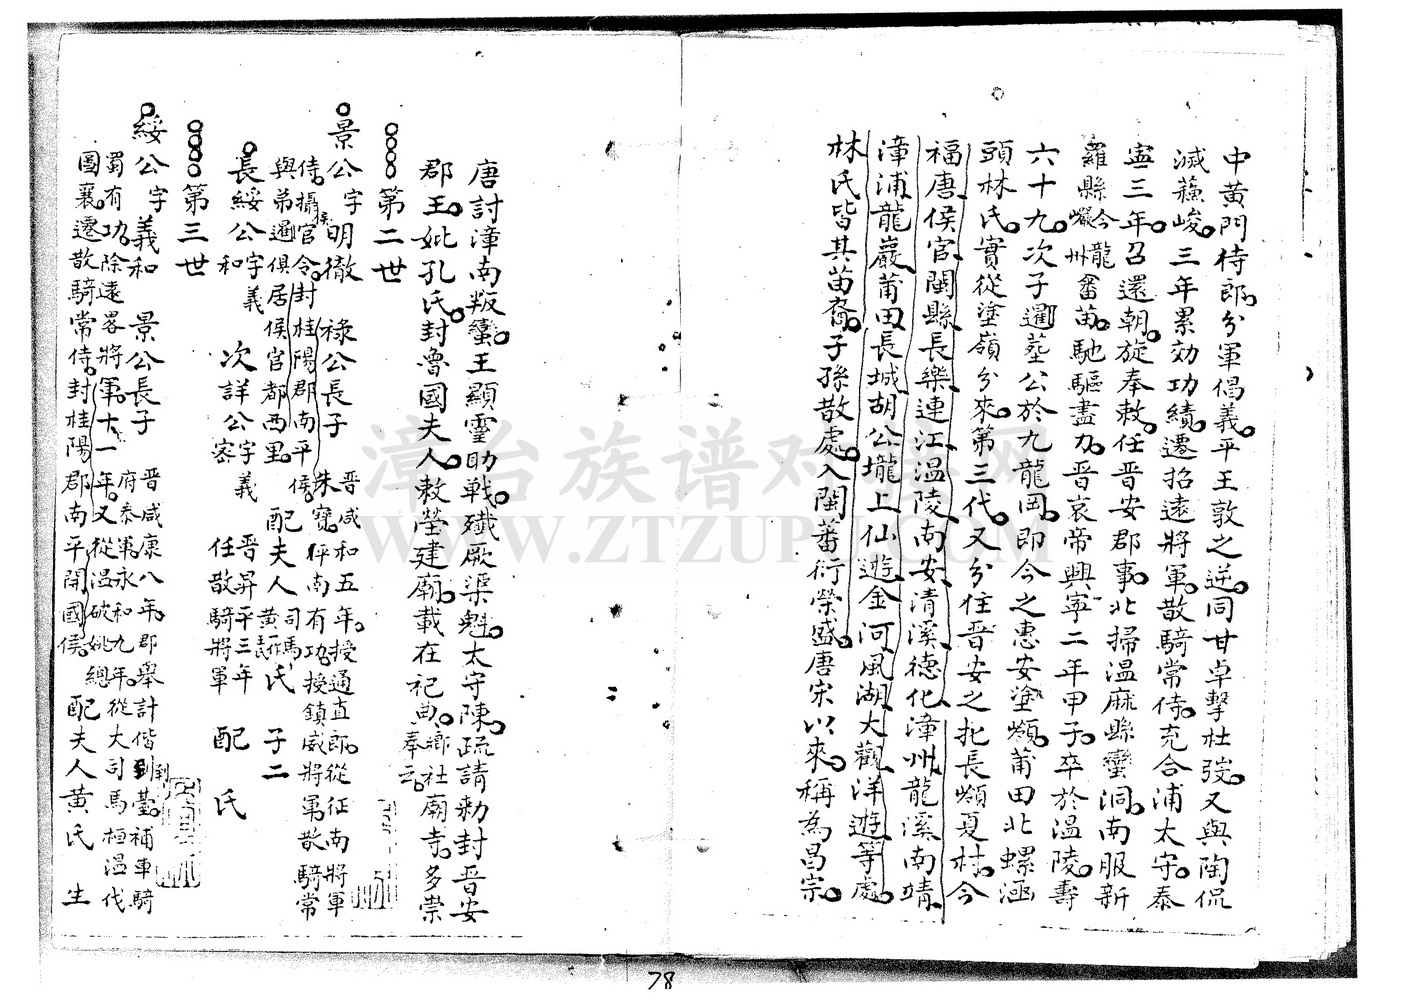 中黃門侍郎分軍倡義平王敦之逆同甘卓擊杜弢又與陶侃
滅蘓峻三年累效功績遷招遠將軍散騎常侍充合浦太守泰
寧三年召還朝旋奉敕任晉安郡事北掃溫麻縣蠻洞南服新
羅縣今龍巖州畨苗馳驅盡力晉哀帝興寧二年甲子卒於溫陵壽
六十九次子暹塟公於九龍岡即今之惠安塗嶺莆田北螺涵
頭林氏實從塗嶺分來第三代又分住晉安之北長嶺夏村今
福唐侯官閩縣長樂連江溫陵南安清溪德化漳州龍溪南靖
漳浦龍巖莆田長城胡公壠上仙遊金河風湖大觀洋遊等處
林氏皆其苗裔子孫散處入閩蕃衍榮盛唐宋以來稱為昌宗
唐討漳南叛蠻王顯靈助戰殲厥渠魁太守陳疏請勅封晉安
郡王妣孔氏封魯國夫人敕塋建廟載在祀典鄉社廟寺多崇奉云
第二世
景公字明徹 祿公長子 晉咸和五年授通直郎從征南將軍
侍攝官令封桂陽郡南平侯 朱寶伻南有功授鎮威將軍散騎常
與弟暹俱居侯官都西里 配夫人黃氏 子二
長綏公字義和 次詳公字義密 晉昇平三年任散騎將軍 配 氏
第三世
綏公字義和 景公長子 晉咸康八年郡舉計偕到臺補車騎
府泰軍永和九年從大司馬桓溫伐
蜀有功除遠畧將軍十一年又從溫破姚總
圖襄遷散騎常侍封桂陽郡南平開國侯 配夫人黃氏 生
漳台族谱对接网
WWW.ZTZUPU.COM
78